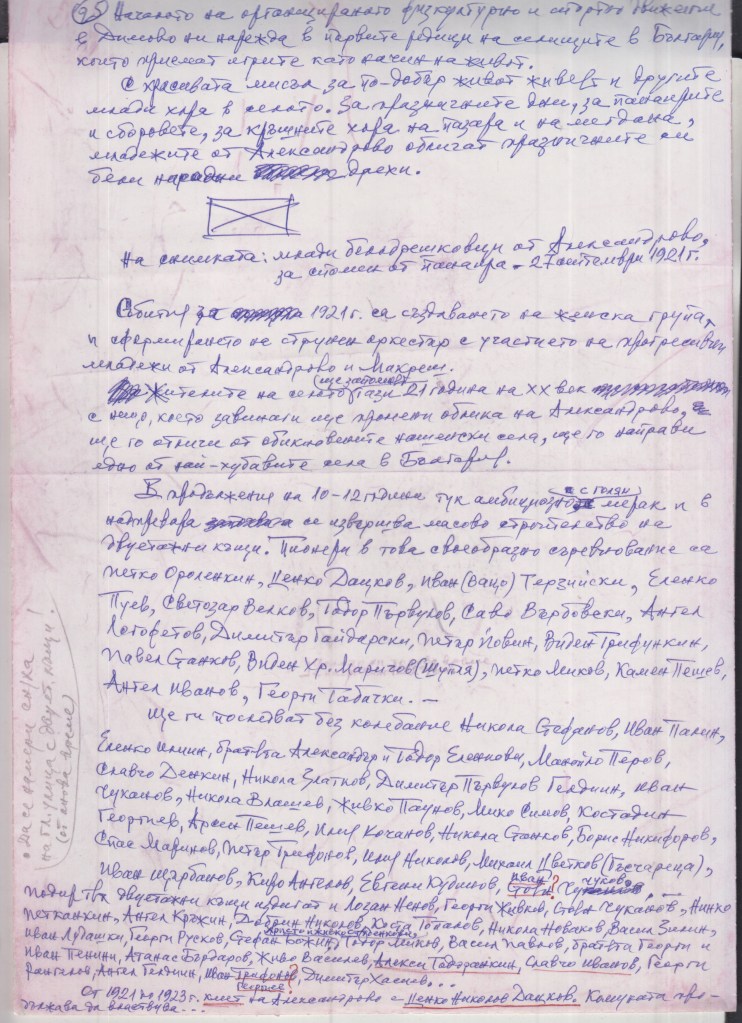 95) Началото на организираното физкултурно и спортно движение
в Димово ни нарежда в първите редици на селищата в България,
които приемат игрите като начин на живот.
С красивата мисъл за по-добър живот живеят и другите
млади хора в селото. За празничните дни, за панаирите
и сборовете, за кръшните хора на пазара и на мегдана,
младежите от Александрово обличат празничните си
бели народни дрехи.
На снимката: млади белодрешковци от Александрово,
за спомен от панаира - 27 септември 1921 г.
Събития за 1921 г. са създаването на женска група,
и сформирането на струнен оркестър с участието на прогресивни
младежи от Александрово и Макреш.
Жителите на селото ще запомнят тази 21 година на XX век
с нещо, което завинаги ще промени облика на Александрово,
ще го отличи от обикновените нашенски села, ще го направи
едно от най-хубавите села в България.
В продължение на 10-12 години тук амбициозно с голям мерак и в
надпревара се извършва масово строителство на
двуетажни къщи. Пионери в това своеобразно съревнование са
Петко Ороленкин, Ценко Дацков, Иван (Вацо) Терзийски, Еленко
Пуев, Светозар Велков, Тодор Първулов, Саво Върбовски, Ангел
Логофетов, Димитър Гайдарски, Петър Йовин, Виден Трифункин,
Павел Станков, Виден Хр. Маричов (Шутия), Петко Миков, Камен Пешев,
Ангел Иванов, Георги Табачки. —
Ще ги последват без колебание Никола Стефанов, Иван Палин,
Еленко Илиин, братята Александър и Тодор Еленкови, Манойло Перов,
Славчо Денкин, Никола Златков, Димитър Първулов Гелдиин, Иван
Чуканов, Никола Влашев, Живко Паунов, Мико Симов, Костадин
Георгиев, Арсен Пешев, Илия Кочанов, Никола Станков, Борис Никифоров,
Спас Маринов, Петър Трифонов, Илия Николов, Михаил Цветков (Гъсчареца),
Иван Щърбанов, Киро Ангелов, Евгени Кудинов, Иван Чуков, —
Подир тях двуетажни къщи издигат и Логан Ненов, Георги Живков, Стоян Чуканов, Нинко
Петканкин, Ангел Кръжин, Добрин Николов, Коста Топалов, Никола Новаков, Васил Зинин,
Иван Лудашки, Георги Русков, Стефан Божин, Тодор Миков, Васил Павлов, братята Георги и
Иван Пенини, Атанас Бърдаров, Живо Василев, Алекси Тодоранкин, Славчо Иванов, Георги
Рангелов, Ангел Гелдиин, Иван Трифонов, Георгиев? Димитър Хаснев...
От 1921 до 1923 г. кмет на Александрово е Ценко Николов Дацков. Комуната про-
дължава да властва...
• Да се намери сн/ка
на гл. улица с двует. къщи!
(от онова време)